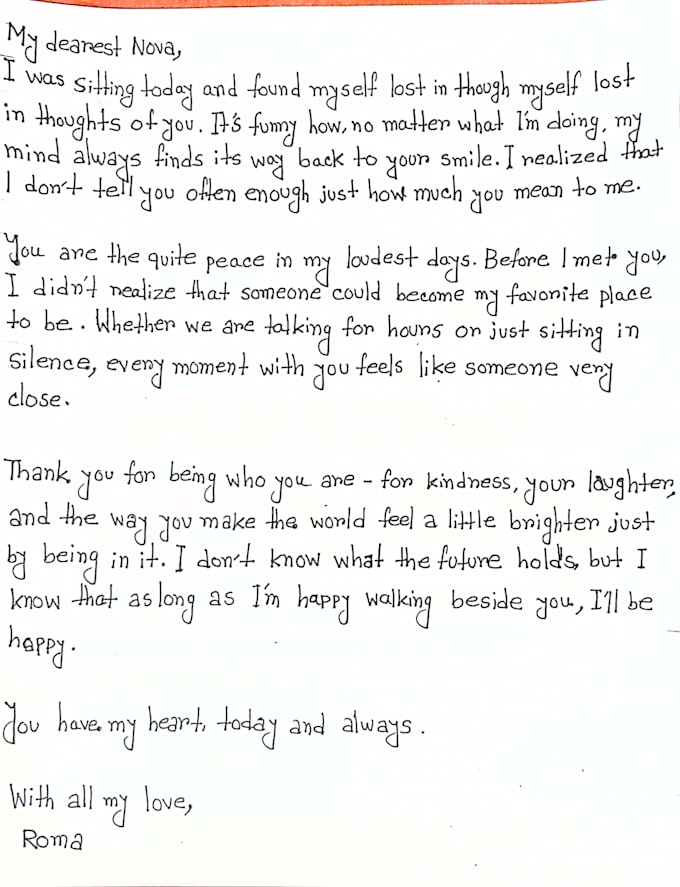 My dearest Nova,
I was sitting today and found myself lost in though myself lost
in thoughts of you. It's funny how, no matter what I'm doing, my
mind always finds its way back to your smile. I realized that
I don't tell you often enough just how much you mean to me.
You are the quite peace in my loudest days. Before I met you,
I didn't realize that someone could become my favorite place
to be. Whether we are talking for hours or just sitting in
silence, every moment with you feels like someone very
close.
Thank you for being who you are - for kindness, your laughter,
and the way you make the world feel a little brighter just
by being in it. I don't know what the future holds, but I
know that as long as I'm happy walking beside you, I'll be
happy.
You have my heart, today and always.
With all my love,
Roma